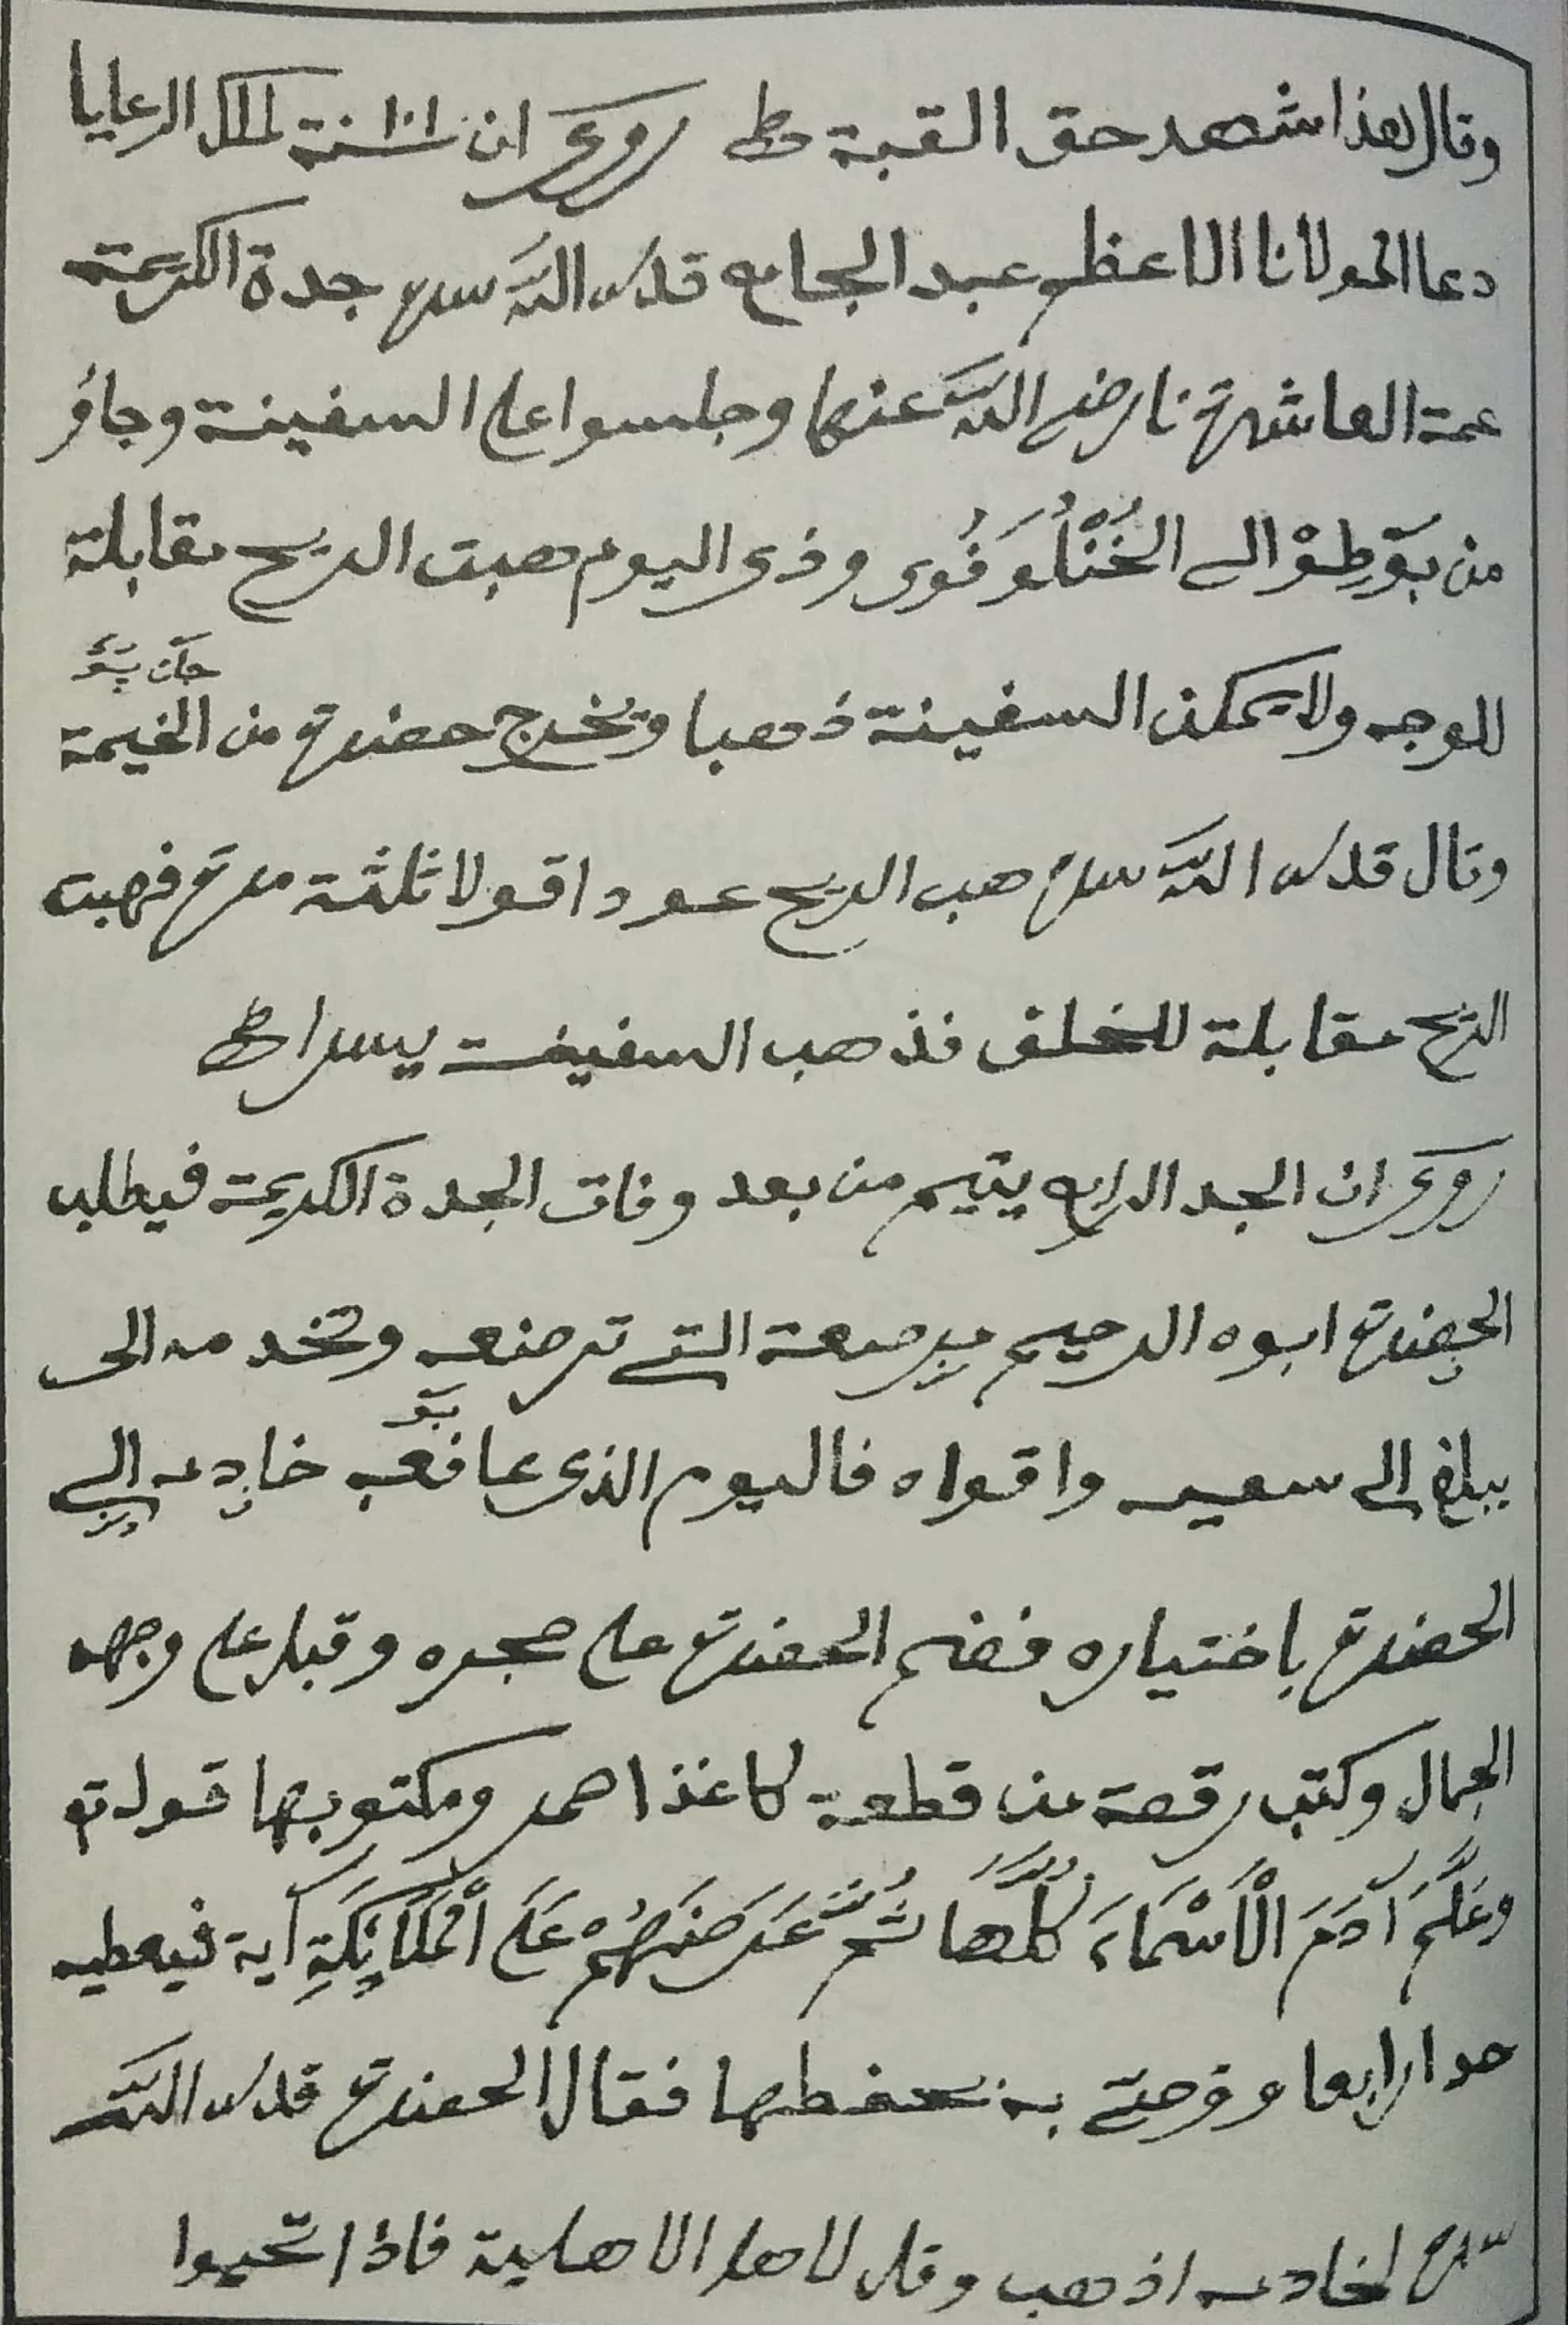 وقال هذا شهد حق القبة ط روى ان
دعا الى مولانا الاعظم عبد الجامع قدس الله سره جدة الكريمة
عمة العاشرتنا رضى الله عنها وجلسوا على السفينة وجاؤ
من الى وفى اليوم هبت الريح مقابلة
جان يٹو
للوجه ولا يمكن السفينة ذهبا وتخرج حضرة من الخيمة
وقال قدس الله سره هب الريح عودا قولا ثلثة مرة فهبت
الريح مقابلة للخلف فذهب السفينة يسرا ط
روى ان الجد الرابع يتيم من بعد وفات الجدة الكريمة فيطلب
الحضرة ابوه الرحيم مرضعة التى ترضعه وتخدمه الى
يبلغ الى سعيه واقواه فاليوم الذى خادمه الى
الحضرة باختياره فضم الحضرة على حجره وقبل على وجهه
الجمال وكتب رقعة من قطعة كاغذ احمر ومكتوبها قوله تع
وَعَلَّمَ آدَمَ الْاَسْمَاءَ كُلَّهَا ثُمَّ عَرَضَهُمْ عَلَى الْمَلَائِكَةِ آية فيعطيه
رابعا به يحفظها فقال الحضرة قدس الله
سره لخادمه اذهب وقل لاهل الاهلية فاذا